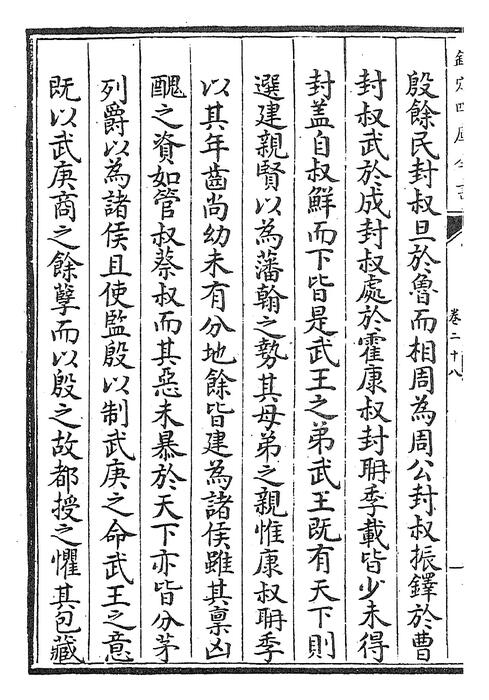 欽定四庫全書
卷二十八
殷餘民封叔旦於魯而相周為周公封叔振鐸於曹
封叔武於成封叔處於霍康叔封𣅈季載皆少未得
封盖自叔鮮而下皆是武王之弟武王既有天下則
選建親賢以為藩翰之勢其母弟之親惟康叔𣅈季
以其年齒尚幼未有分地餘皆建為諸侯雖其稟凶
醜之資如管叔蔡叔而其惡未暴於天下亦皆分茅
列爵以為諸侯且使監殷以制武庚之命武王之意
既以武庚商之餘孽而以殷之故都授之懼其包藏